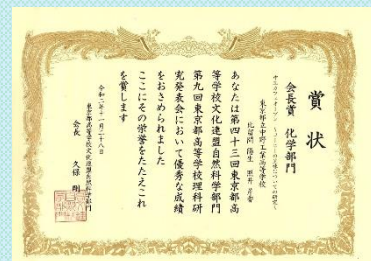 賞状
会長賞 化学部門
東京都立中野工業高等学校
あなたは第四十三回東京都高
等学校文化連盟自然科学部門
第九回東京都高等学校理科研
究発表会において優秀な成績
をおさめられました
ここにその栄誉をたたえこれ
を賞します
令和二年十一月二十八日
東京都高等学校文化連盟自然科学部門
会長 久保 剛